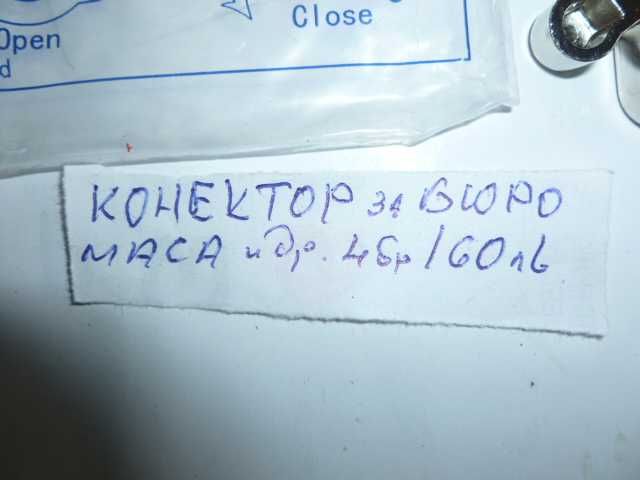 Close
Open
d
КОНЕКТОР за БЮРО
МАСА и др. 4бр/60лв